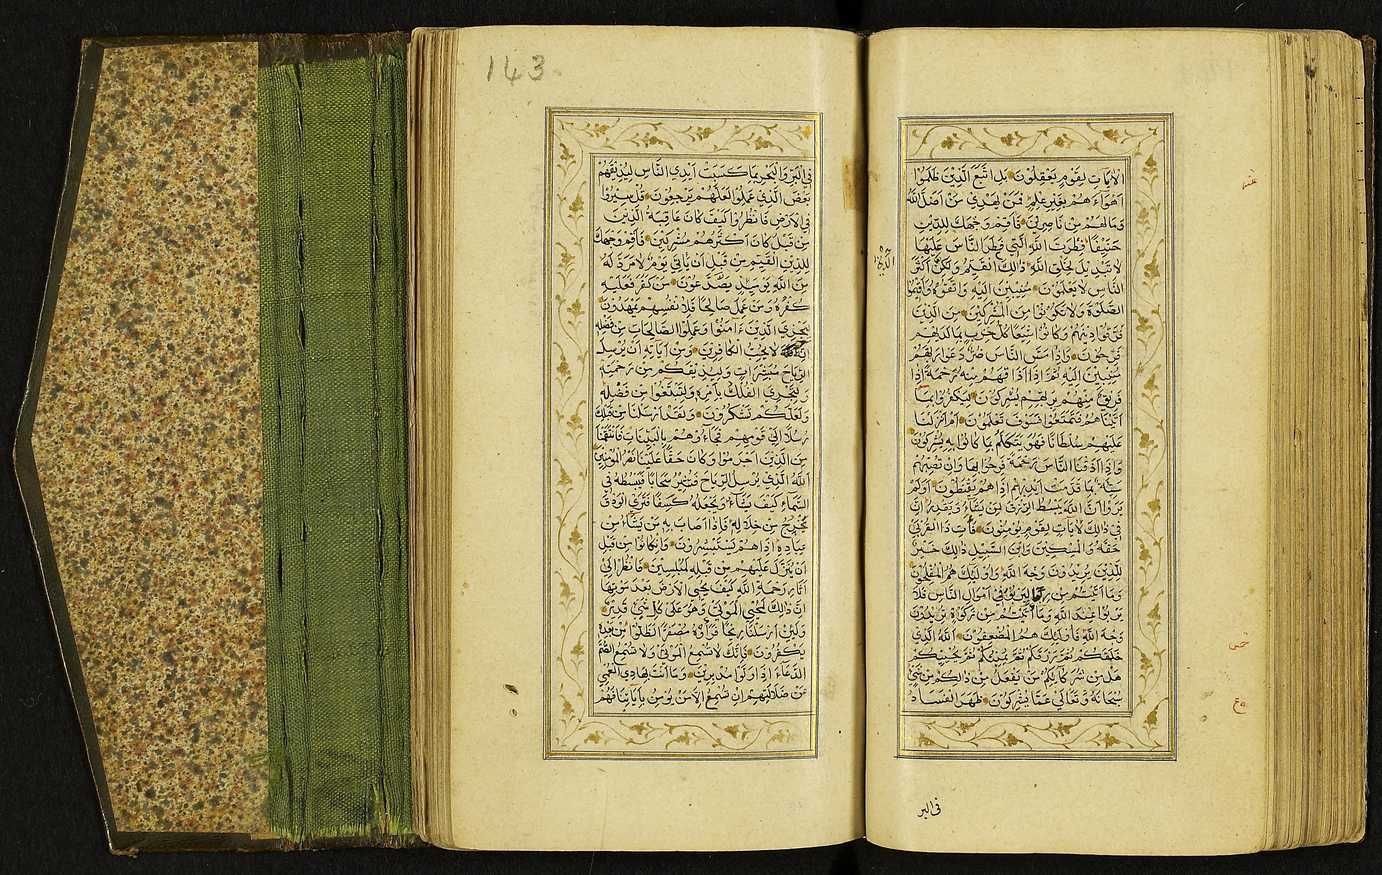 الآيات لقوم يعقلون بل اتبع الذين ظلموا
أهواءهم بغير علم فمن يهدي من أضل الله
وما لهم من ناصرين فأقم وجهك للدين
حنيفا فطرت الله التي فطر الناس عليها
لا تبديل لخلق الله ذالك القيم ولكن أكثر
الدين
الناس لا يعلمون منيبين إليه واتقوه وأقيموا
الصلوة ولا تكونوا من المشركين من الذين
فرقوا دينهم وكانوا شيعا كل حزب بما لديهم
فرحون وإذا مس الناس ضر دعوا ربهم
منيبين إليه ثم إذا أذاقهم منه رحمة إذا
فريق منهم بربهم يشركون ليكفروا بما
آتيناهم فتمتعوا فسوف تعلمون أم أنزلنا
عليهم سلطانا فهو يتكلم بما كانوا به يشركون
وإذا أذقنا الناس رحمة فرحوا بها وإن تصبهم
سيئة بما قدمت أيديهم إذا هم يقنطون أولم
يروا أن الله يبسط الرزق لمن يشاء ويقدر إن
في ذالك لآيات لقوم يؤمنون فآت ذا القربى
حقه والمسكين وابن السبيل ذالك خير
للذين يريدون وجه الله وأولئك هم المفلحون
وما آتيتم من ربا ليربو في أموال الناس فلا
يربو عند الله وما آتيتم من زكوة تريدون
وجه الله فأولئك هم المضعفون الله الذي
خلقكم ثم رزقكم ثم يميتكم ثم يحييكم
هل من شركائكم من يفعل من ذالكم من شيء
سبحانه وتعالى عما يشركون ظهر الفساد
في البر
143
في البر والبحر بما كسبت أيدي الناس ليذيقهم
بعض الذي عملوا لعلهم يرجعون قل سيروا
في الأرض فانظروا كيف كان عاقبة الذين
من قبل كان أكثرهم مشركين فأقم وجهك
للدين القيم من قبل أن يأتي يوم لا مرد له
من الله يومئذ يصدعون من كفر فعليه
كفره ومن عمل صالحا فلأنفسهم يمهدون
ليجزي الذين ءامنوا وعملوا الصالحات من فضله
إنه لا يحب الكافرين ومن آياته أن يرسل
الرياح مبشرات وليذيقكم من رحمته
ولتجري الفلك بأمره ولتبتغوا من فضله
ولعلكم تشكرون ولقد أرسلنا من قبلك
رسلا إلى قومهم فجاءوهم بالبينات فانتقمنا
من الذين أجرموا وكان حقا علينا نصر المؤمنين
الله الذي يرسل الرياح فتثير سحابا فيبسطه في
السماء كيف يشاء ويجعله كسفا فترى الودق
يخرج من خلاله فإذا أصاب به من يشاء من
عباده إذا هم يستبشرون وإن كانوا من قبل
أن ينزل عليهم من قبله لمبلسين فانظر إلى
آثار رحمة الله كيف يحيي الأرض بعد موتها
إن ذالك لمحيي الموتى وهو على كل شيء قدير
ولئن أرسلنا ريحا فرأوه مصفرا لظلوا من بعده
يكفرون فإنك لا تسمع الموتى ولا تسمع الصم
الدعاء إذا ولوا مدبرين وما أنت بهادي العمي
عن ضلالتهم إن تسمع إلا من يؤمن بآياتنا فهم